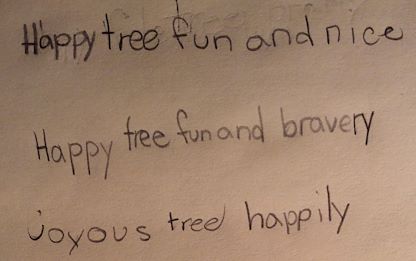 Happy tree fun and nice
Happy tree fun and bravery
joyous tree happily